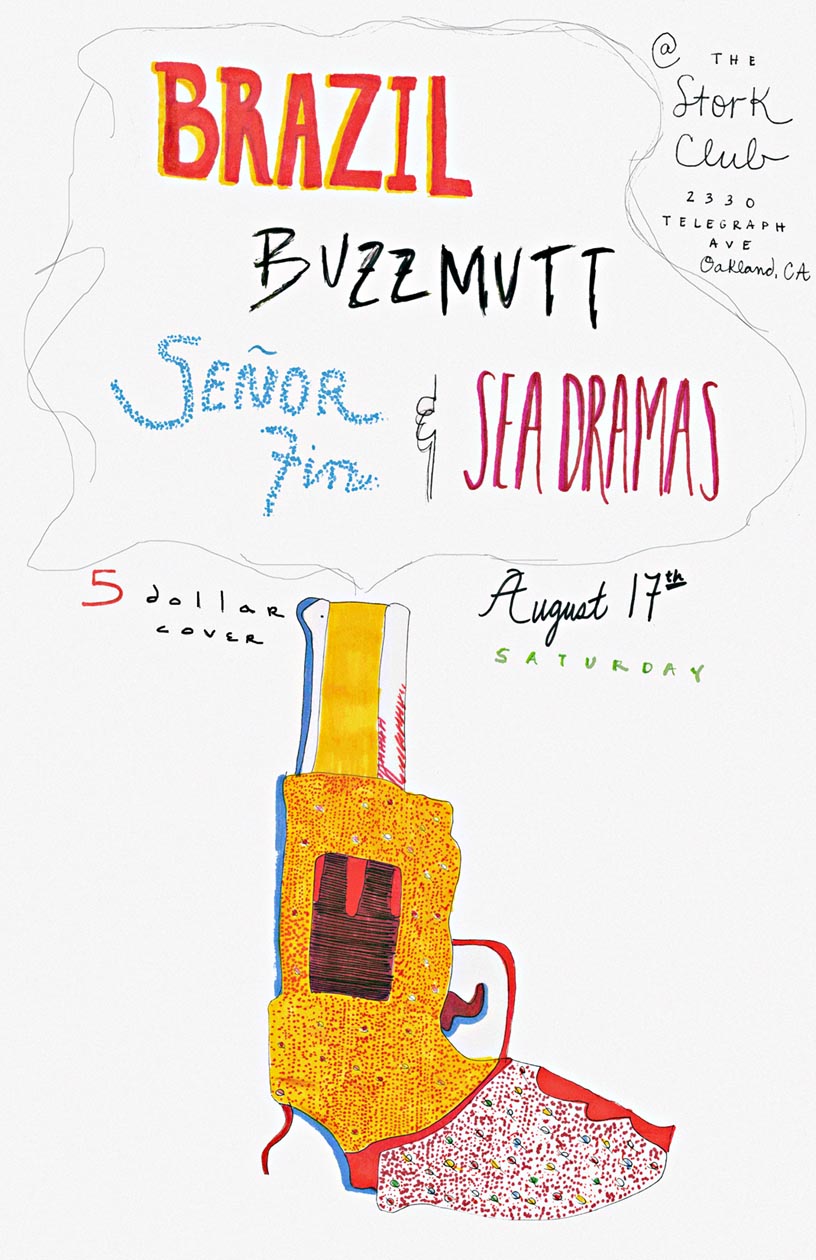 BRAZIL
BUZZMUTT
SEÑOR
fin
&
SEA DRAMAS
@ THE
Stork
Club
2330
TELEGRAPH
AVE
Oakland, CA
5 dollar
cover
August 17th
SATURDAY